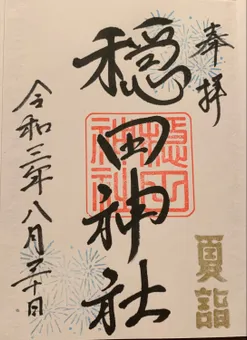 奉拝
夏詣
穏田神社
穏田神社
令和三年八月三十日